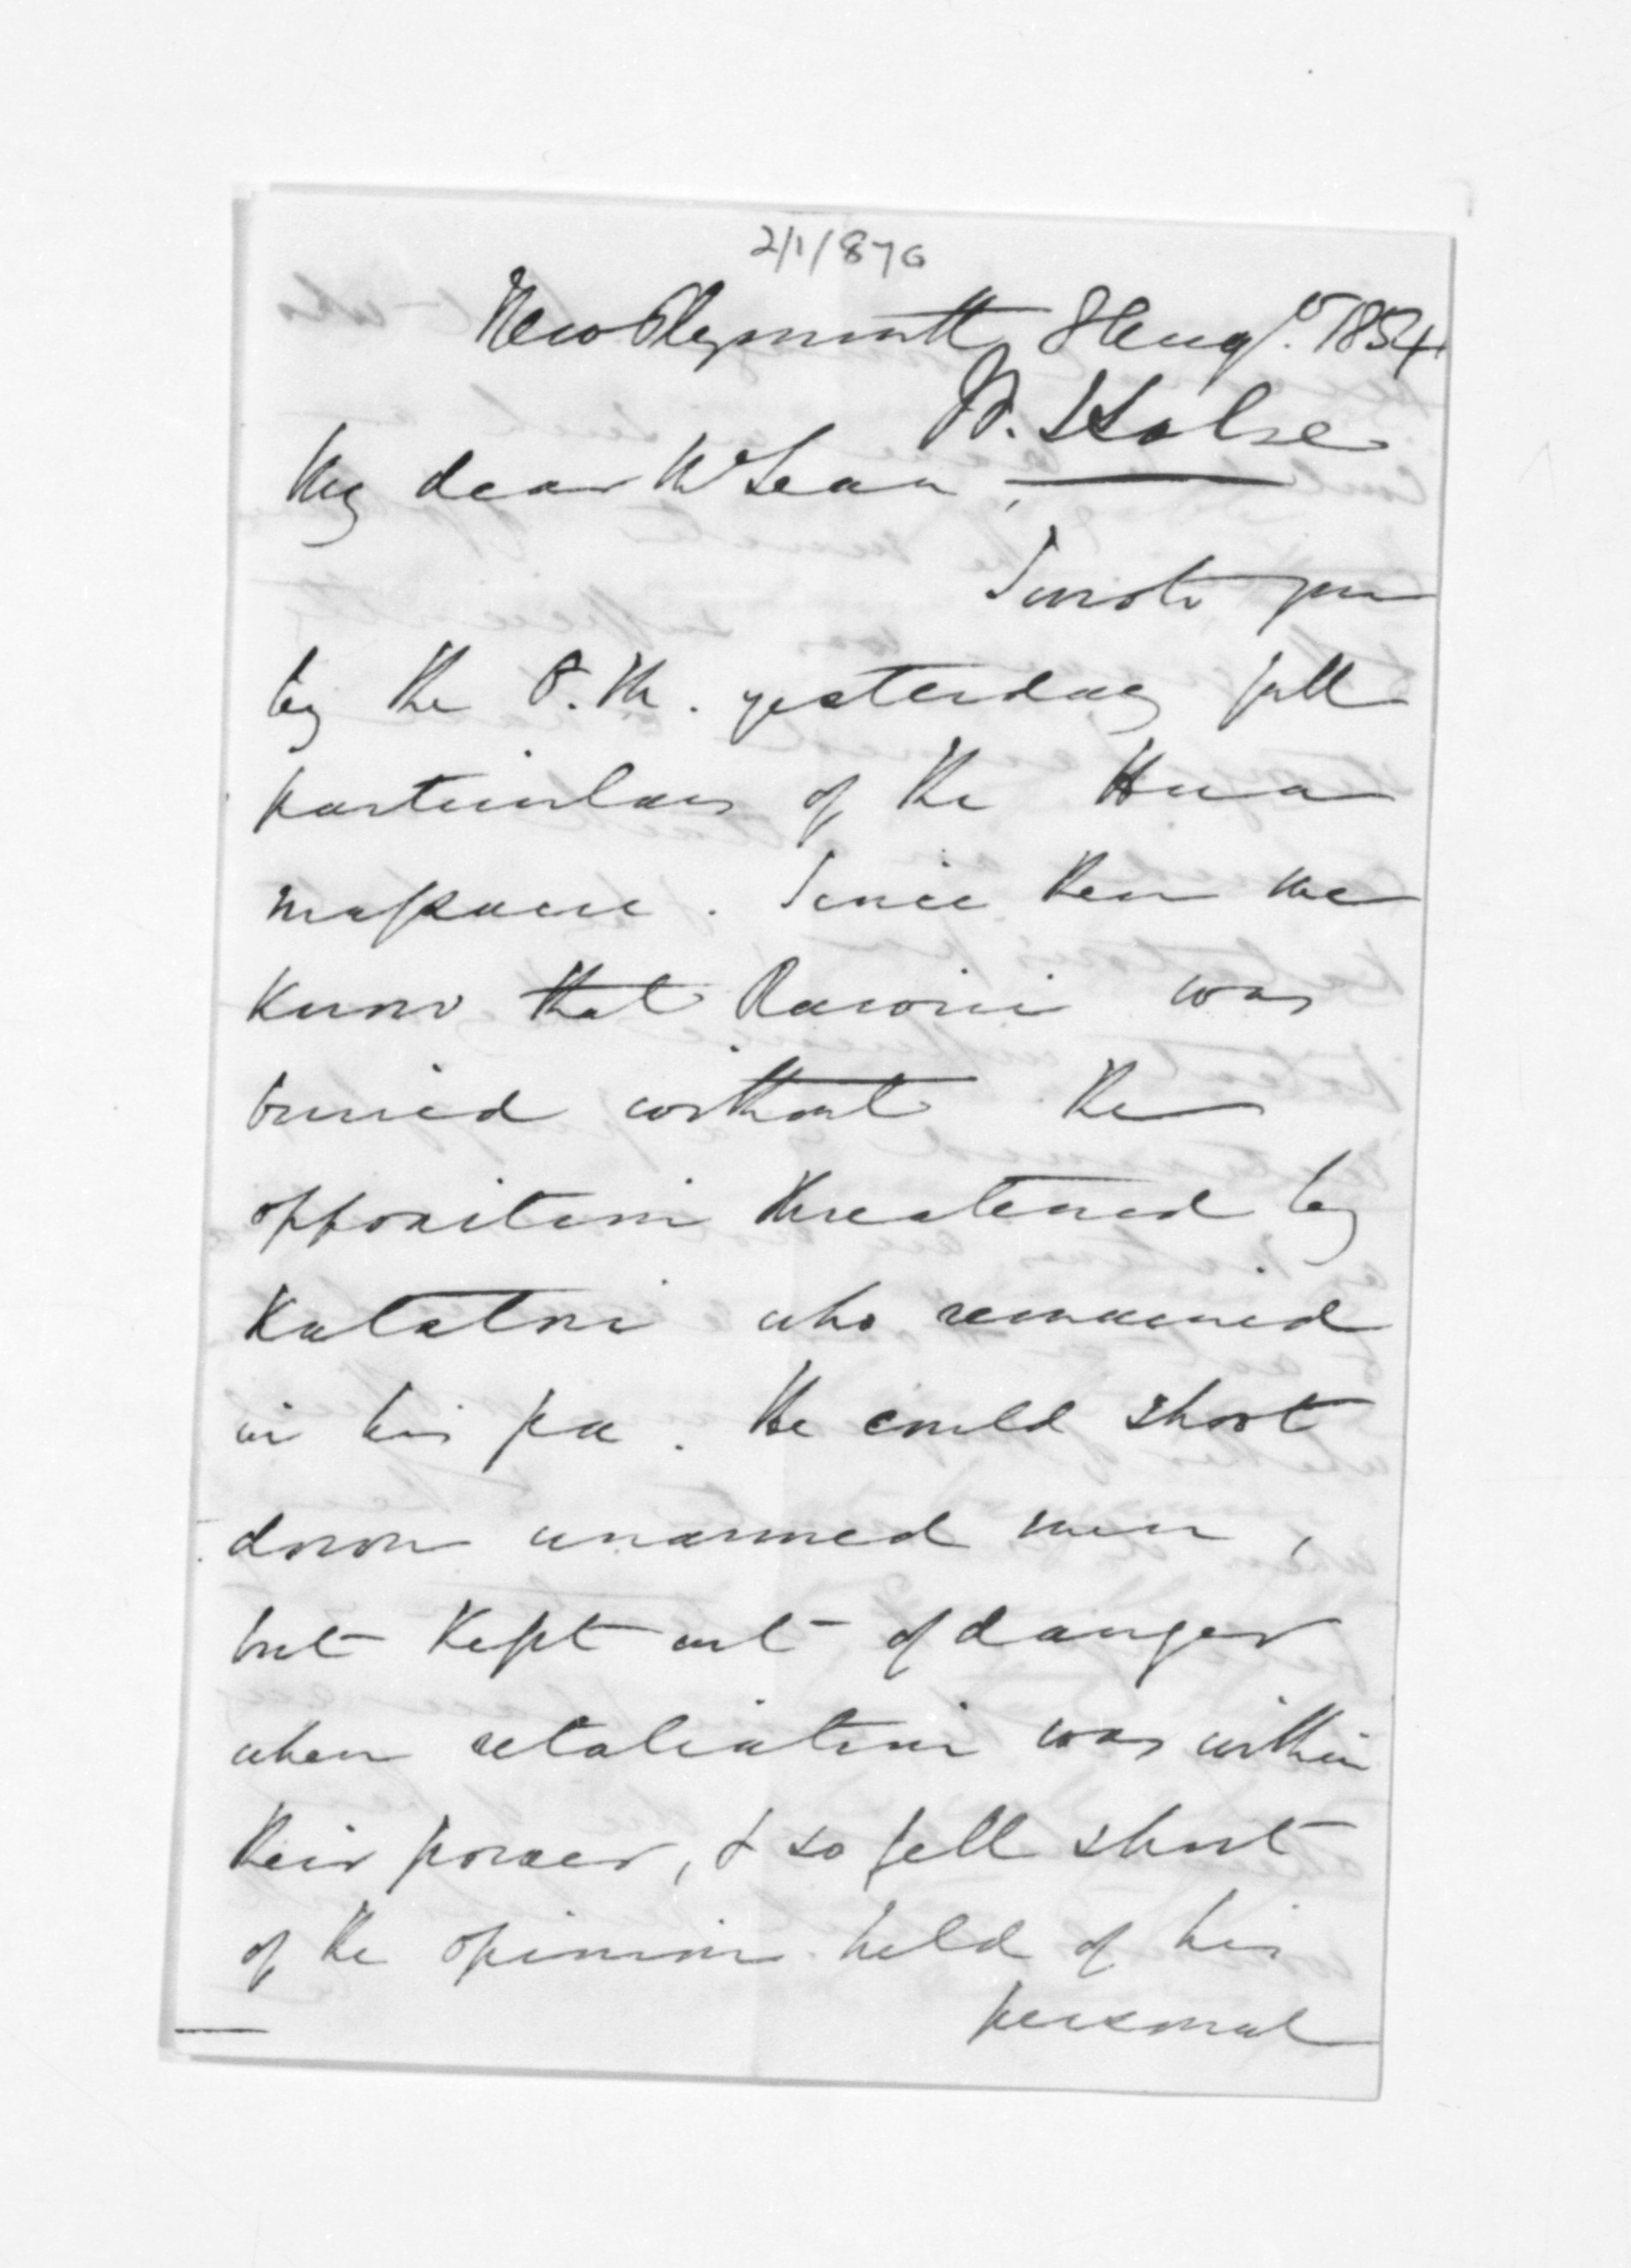 2/1/876
New Plymouth, 8 Augt. 1854
W. Halse
My dear McLean,
I wrote you
by the O.M. yesterday full
particulars of the Hua
massacre. Since then we
know that Rawiri was
buried without the
opposition threatened by
Katatore who remained
in his pa. He could shoot
down unarmed men,
but kept out of danger
when retaliation was within
their power, & so fell short
of the opinion held of his
personal